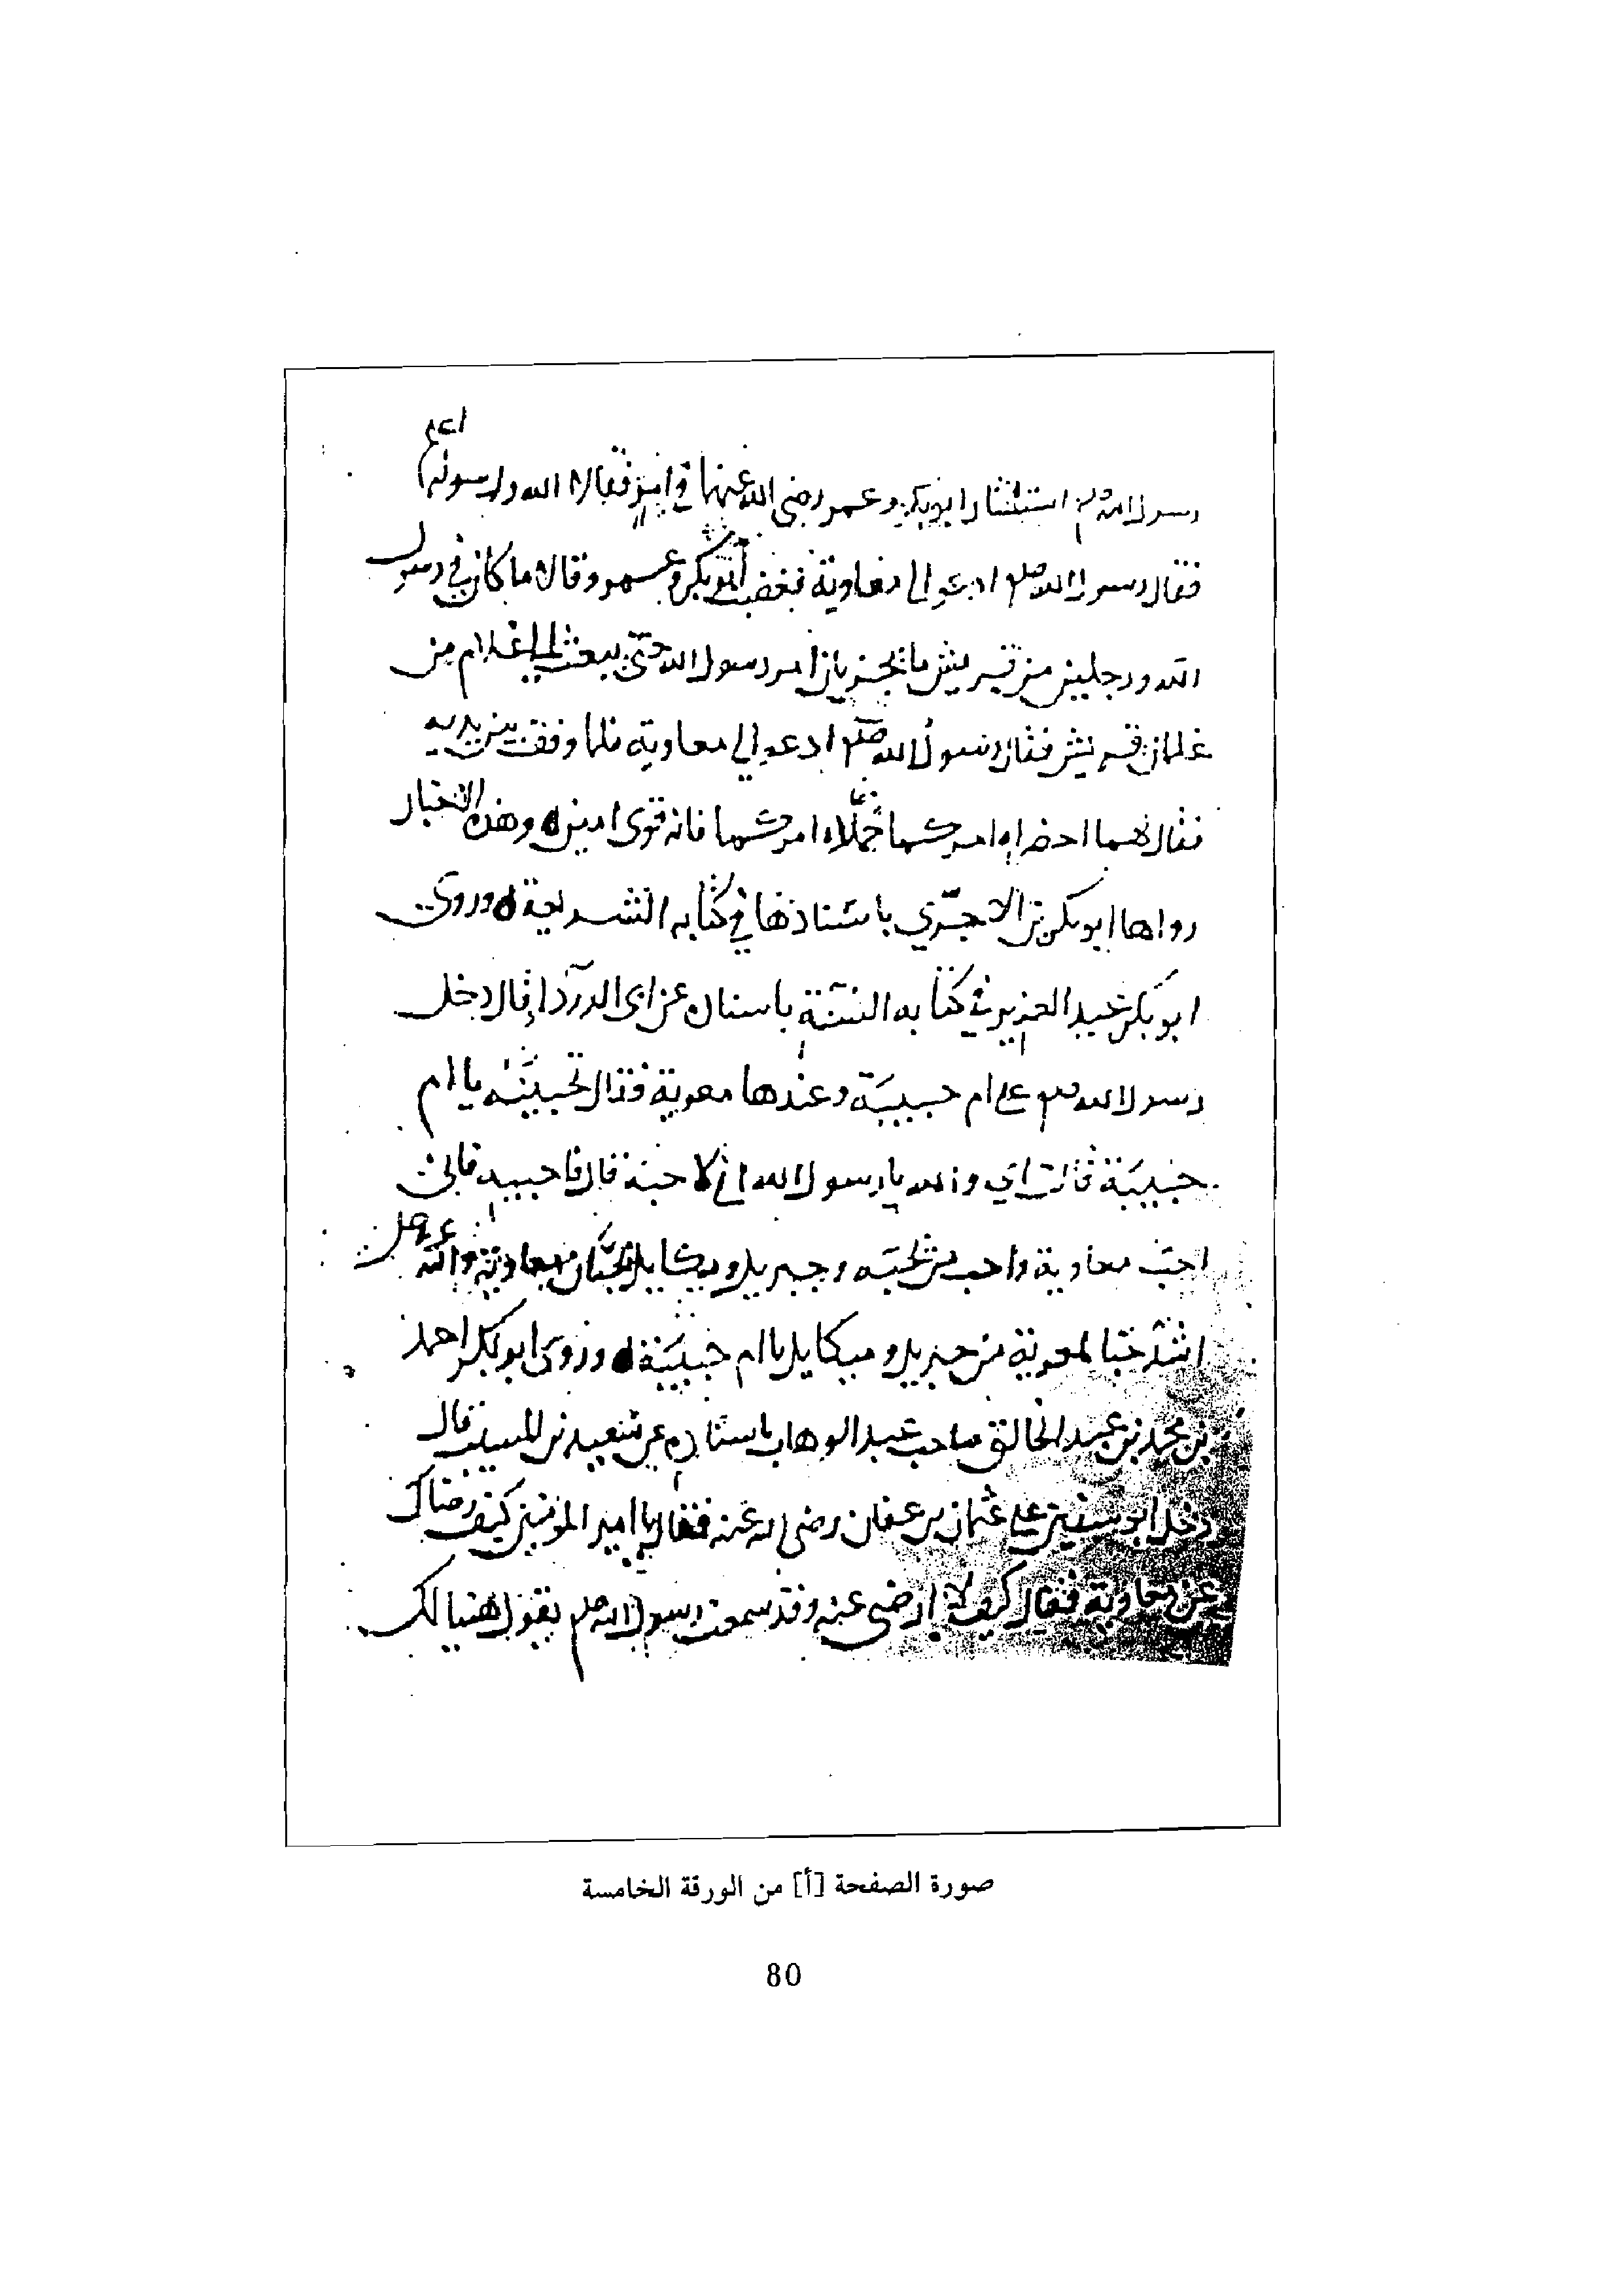 رسول الله صلم استشار ابو بكر وعمر رضي الله عنهما في امر فقالا الله ورسوله اعلم
فقال رسول الله صلم ادعو الي معاوية فغضب ابو بكر وعمر وقالا ما كان في رسول
الله ورجلين من قريش ما يجزيان امر رسول الله حتى يبعث الى غلام من
غلمان قريش فقال رسول الله صلم ادعو الي معاوية فلما وقف بين يديه
فقال لهما احضراه امركما حملاه امركما فانه قوي امين وهذه الاخبار
رواها ابو بكر بن الاجرّي باسنادها في كتابه الشريعة وروى
ابو بكر عبد العزيز في كتابه السنة باسناده عن ابي الدردا قال دخل
رسول الله صلم على ام حبيبة وعندها معوية فقال تحبينه يا ام
حبيبة قالت اي والله يا رسول الله اني لاحبه قال فاحبيه فاني
احب معاوية واحب من يحبه وجبريل وميكايل يحبان معاوية والله عز وجل
اشد حبا لمعوية من جبريل وميكايل يا ام حبيبة وروى ابو بكر احمد
بن محمد بن عبد الخالق صاحب عبد الوهاب باسناده عن سعيد بن المسيب قال
دخل ابو سفين على عثمان بن عفان رضي الله عنه فقال يا امير المومنين كيف رضاك
عن معاوية فقال كيف لا ارضى عنه وقد سمعت رسول الله صلم يقول هنيا لك
صورة الصفحة [أ] من الورقة الخامسة
80